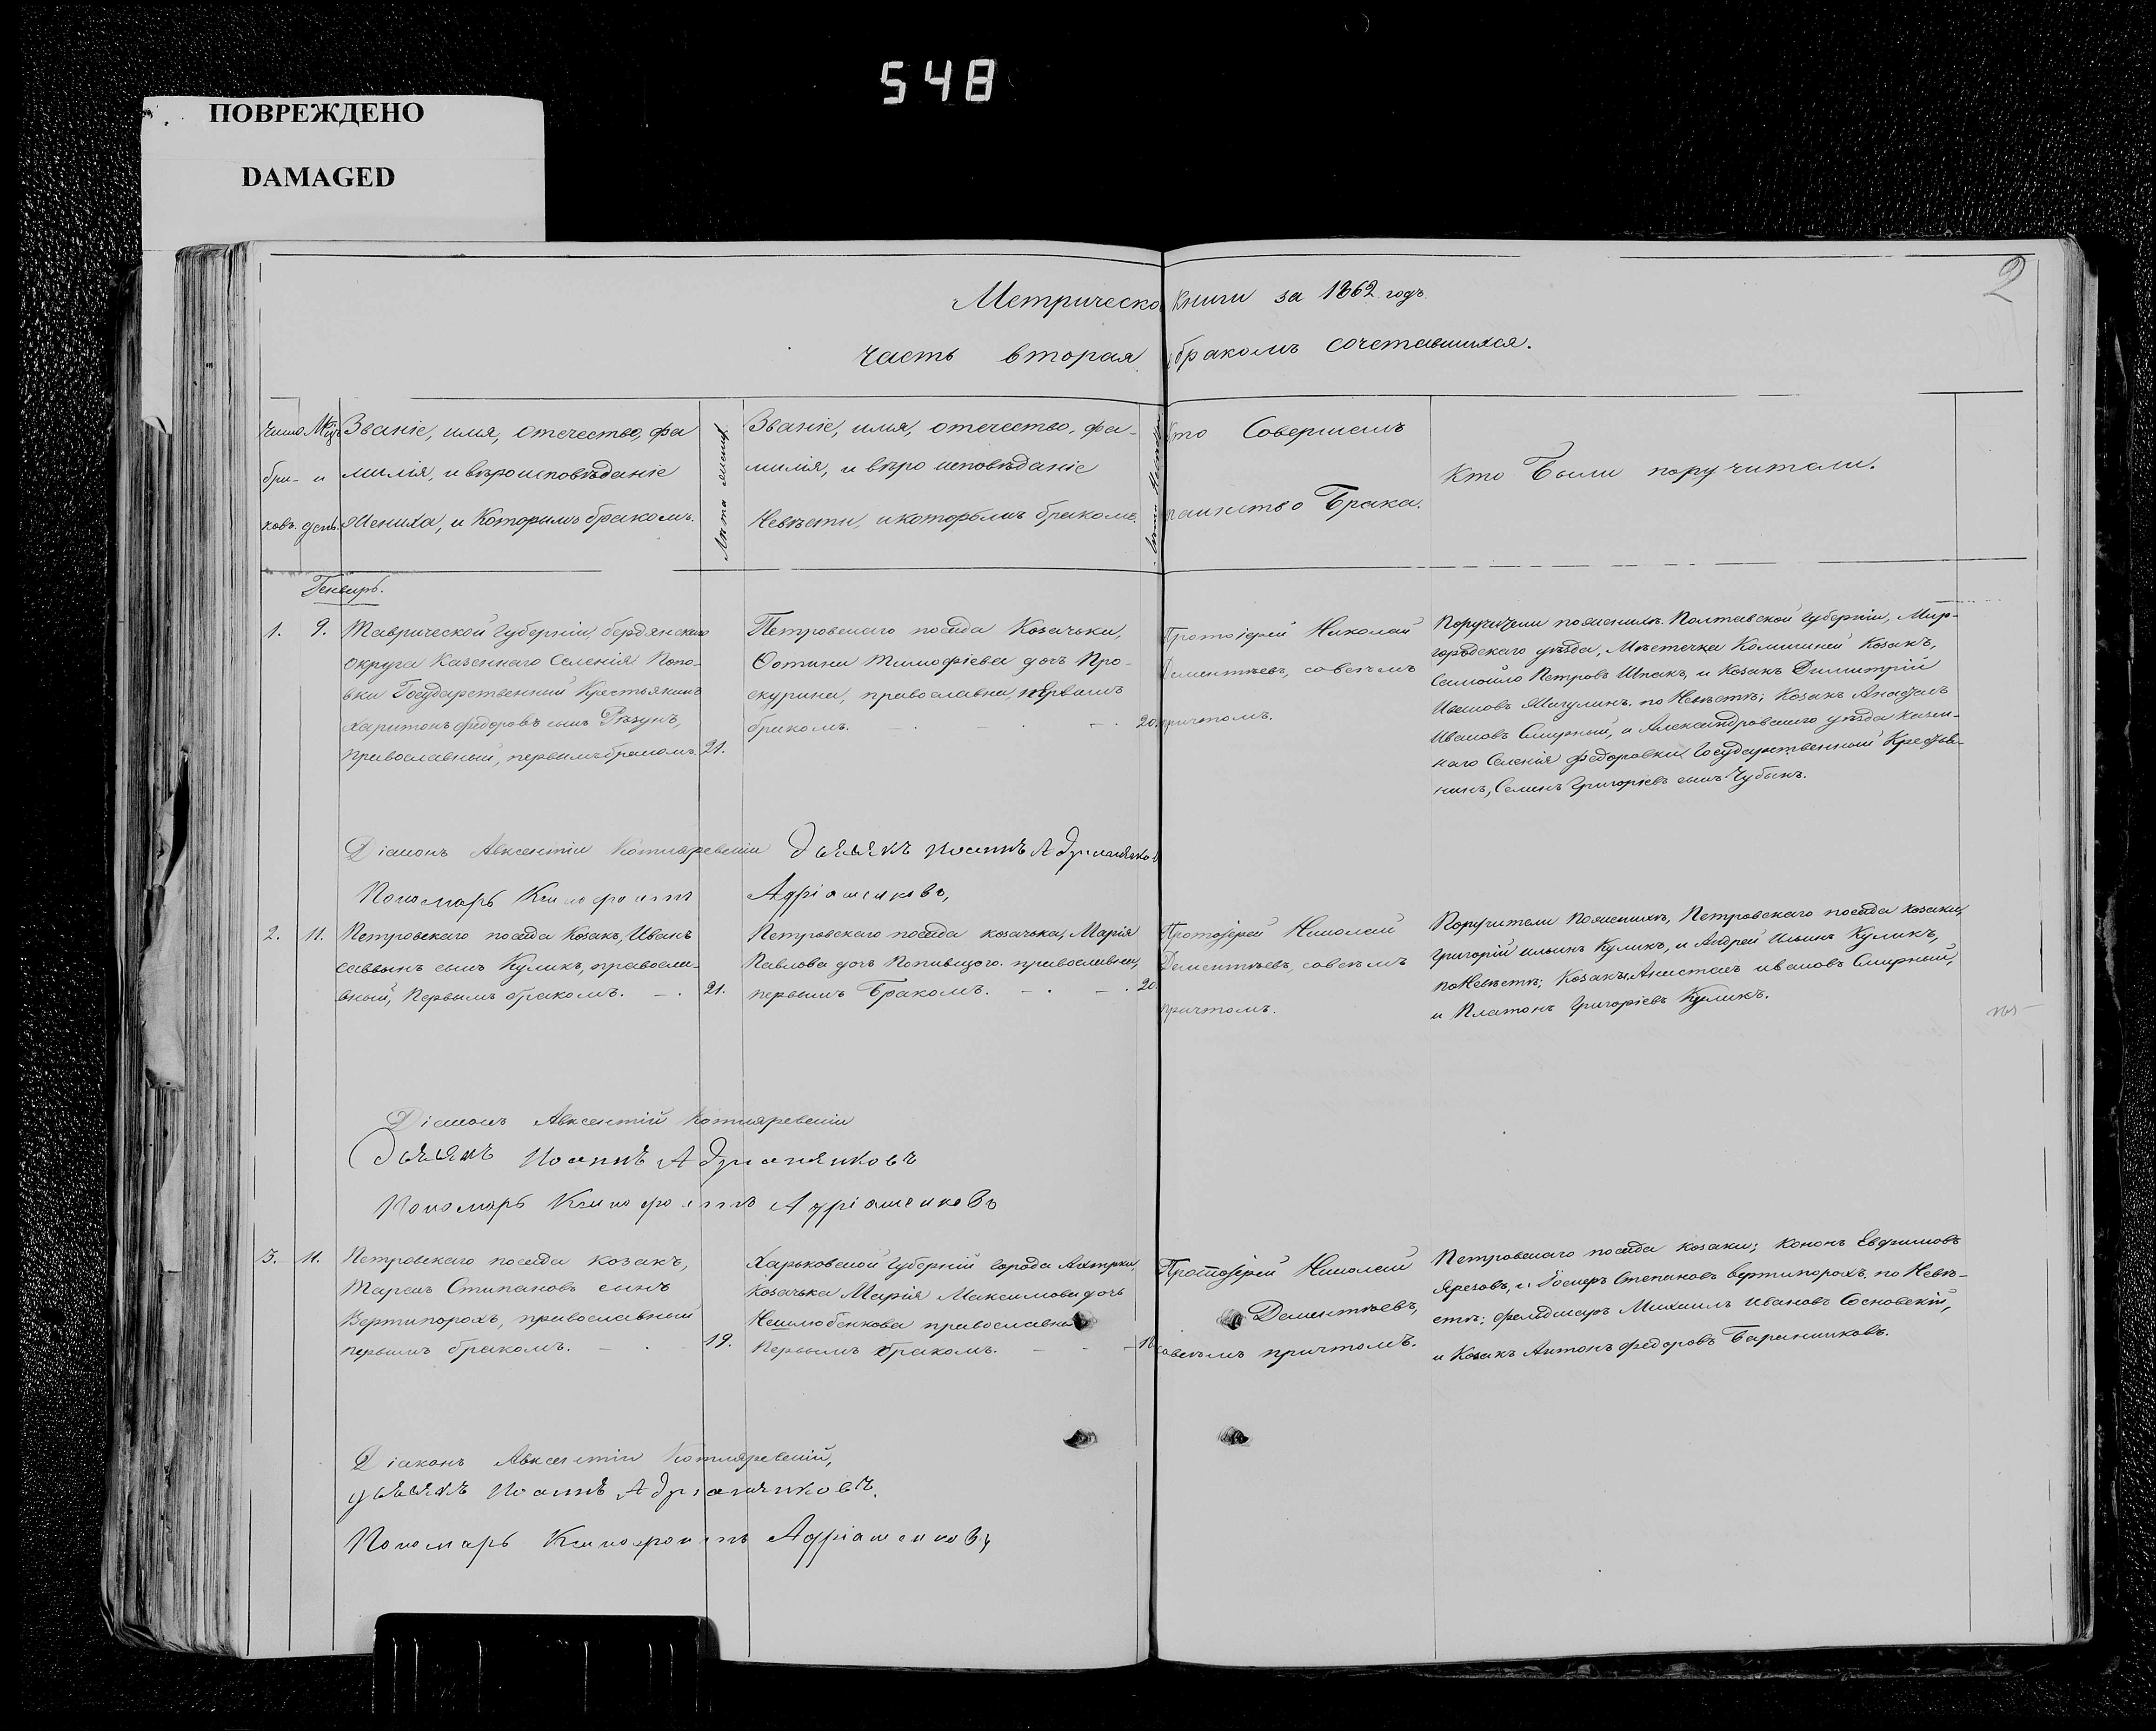 548
ПОВРЕЖДЕНО
DAMAGED
2
Метрическо книги за 1862 годъ.
часть вторая бракомъ сочетавшихся.
Число бра- ковъ.
Мсцъ и день.
Званіе, имя, отечество, фа
милія, и вѣроисповѣданіе
Жениха, и Которымъ бракомъ.
Лѣта жениха
Званіе, имя, отечество, фа-
милія, и вѣро исповѣданіе
Невѣсты, и которымъ бракомъ.
Лѣта Невѣсты
Кто Совершалъ
таинство Брака.
Кто Были поручители.
Генварь.
1. 9. Таврической Губерніи, бердянскаго
округа Казеннаго Селенія Попо-
вки Государственный Крестьянинъ
Харитонъ Федоровъ сынъ Рѣзунъ,
Православный, первымъ бракомъ. 21.
Петровскаго посада Козачька,
Фотина Тимофіева дочь Про-
скурина, православна, первымъ
бракомъ. 20.
Протоіерей Николай
Дементьевъ, совсѣмъ
причтомъ.
Поручители пожениху. Полтавской Губерніи, Мир-
городскаго уѣзда, Мѣстечка Комишней Козакъ,
Самойло Петровъ Шпакъ, и Козакъ Димитрій
Ивановъ Шигулинъ. по Невѣстѣ; Козакъ
Ивановъ Смирный, и Александровскаго уѣзда казен-
наго Селенія Федоровки Государственный Крестья-
нинъ, Семенъ Григоріевъ сынъ Чубынъ.
Діаконъ Авксентій Котляревскій Дьячекъ Иоаннъ Адриаченков
Пономарь Ксенофонтъ Адріаченковъ,
2. 11. Петровскаго посада Козакъ, Иванъ
Саввынъ сынъ Куликъ, правосла-
вный, Первымъ бракомъ. 21.
Петровскаго посада козачька, Марія
Павлова дочь Попивщого. православная,
первымъ Бракомъ. 20
Протоіерей Николай
Дементьевъ, совсѣмъ
причтомъ.
Поручители Пожениху, Петровскаго посада козаки,
Григорій ильинъ Куликъ, и Андрей Ильинъ Куликъ,
по Невѣстѣ; Козакъ ивановъ Смирный,
и Платонъ Григоріевъ Куликъ.
Діаконъ Авксентій Котляревскій
Дьячекъ Иоаннъ Адриаченковъ
Пономарь Ксенофонтъ Адріаченковъ
3. 11. Петровскаго посада козакъ,
Тарасъ Стипановъ сынъ
Вертипорохъ, православный
первымъ бракомъ. 19.
Харьковской Губерній города Ахтирки,
Козачька Марія Максимова дочь
православна
Первымъ бракомъ. 18
Протоіерей Николай
Дементьевъ,
совсѣмъ причтомъ.
Петровскаго посада козаки; Кононъ Евфимовъ
Ярезовъ, и Степановъ вертипорохъ. по Невѣ-
стѣ: фельдшаръ Михаилъ ивановъ Сосновскій,
и Козакъ Антонъ федоровъ Баранниковъ.
Діаконъ Авксентій Котляревскій,
дьячекъ Иоаннъ Адриаченковъ.
Пономарь Ксенофонтъ Адріаченковъ